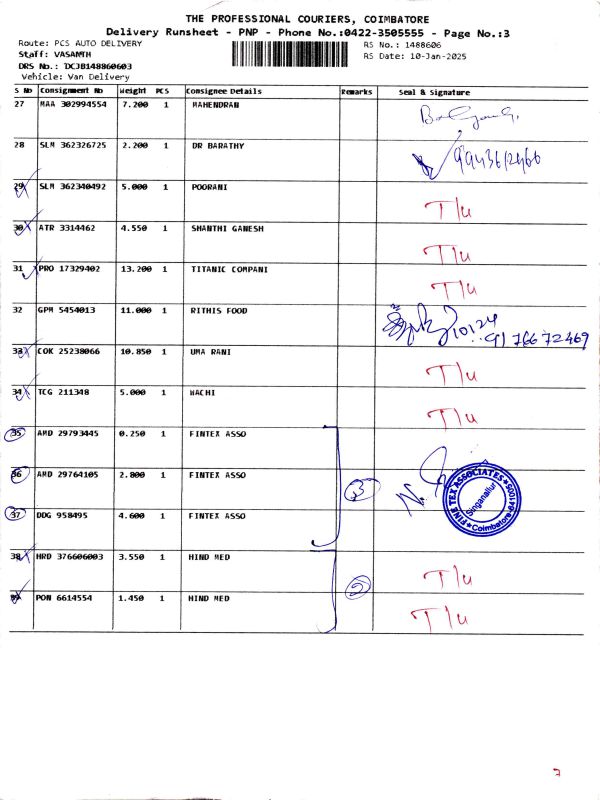 THE PROFESSIONAL COURIERS, COIMBATORE
Delivery Runsheet - PNP - Phone No.:0422-3505555 - Page No.:3
Route: PCS AUTO DELIVERY
RS No.: 1488606
Staff: VASANTH
RS Date: 10-Jan-2025
DRS No.: DCJB148860603
Vehicle: Van Delivery
S No Consignment No Weight PCS Consignee Details Remarks Seal & Signature
27 MAA 302994554 7.200 1 MAHENDRAN
28 SLM 362326725 2.200 1 DR BARATHY
29 SLM 362340492 5.000 1 POORANI T/u
30 ATR 3314462 4.550 1 SHANTHI GANESH T/u
31 PRO 17329402 13.200 1 TITANIC COMPANI T/u
32 GPM 5454013 11.000 1 RITHIS FOOD
9176672469
33 COK 25238066 10.850 1 UMA RANI T/u
34 TCG 211348 5.000 1 WACHI T/u
35 AMD 29793445 0.250 1 FINTEX ASSO
36 AMD 29764105 2.800 1 FINTEX ASSO 3
FINE TEX ASSOCIATES
Singanallur
Coimbatore-641005
37 DDG 958495 4.600 1 FINTEX ASSO
38 HRD 376606003 3.550 1 HIND MED T/u
2
39 PON 6614554 1.450 1 HIND MED T/u